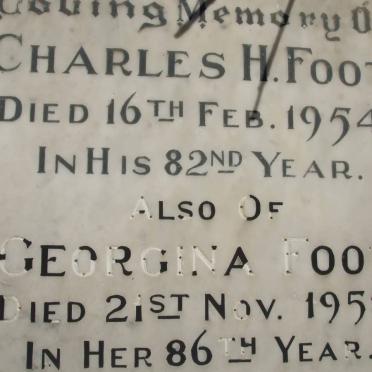 Loving Memory O
CHARLES H. FOOT
DIED 16TH FEB. 1954
IN HIS 82ND YEAR.
ALSO OF
GEORGINA FOO
DIED 21ST NOV. 195
IN HER 86TH YEAR.